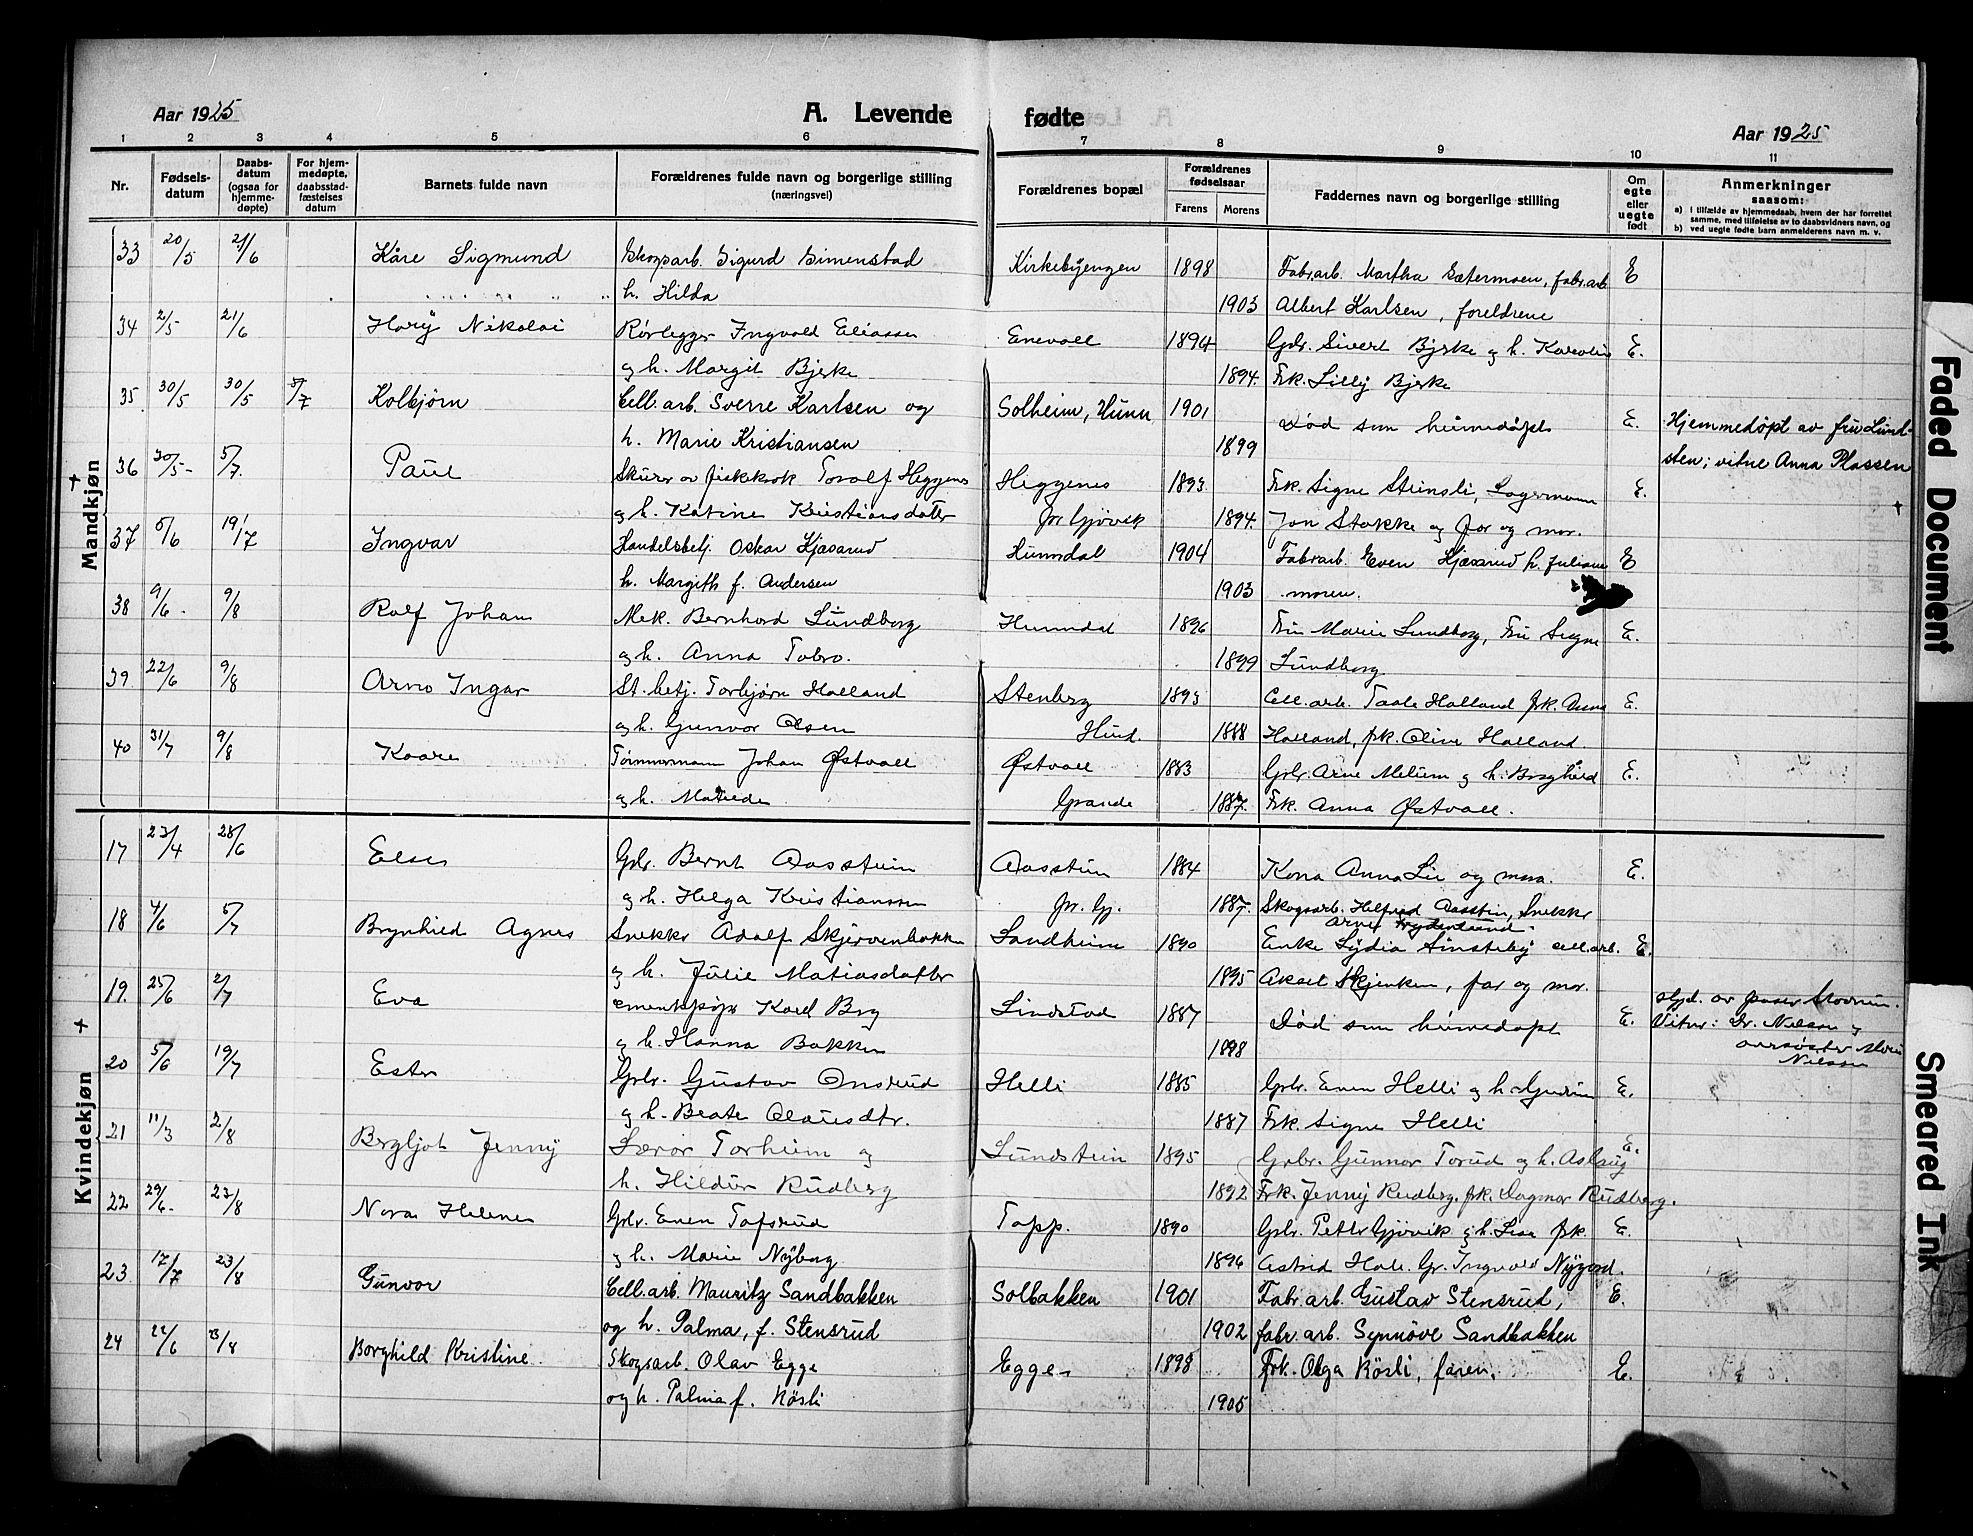 Aar 1925
A. Levende fødte
Aar 1925
1 2 3 4 5 6 7 8 9 10 11
Nr.
Fødsels-
datum
Daabs-
datum
(ogsaa for
hjemme-
døpte)
For hjem-
medøpte,
daabsstad-
fæstelses
datum
Barnets fulde navn
Forældrenes fulde navn og borgerlige stilling
(næringsvei)
Forældrenes bopæl
Forældrenes
fødselsaar
Farens Morens
Faddernes navn og borgerlige stilling
Om
egte
eller
uegte
født
Anmerkninger
saasom:
a) i tilfælde av hjemmedaab, hvem der har forrettet
samme, med tilføielse av to daabsvidners navn, og
b) ved uegte fødte barn anmelderens navn m. v.
Mandkjøn
33 20/5 21/6 Kåre Sigmund Skogsarb. Sigurd Simenstad Kirkebyengen 1898 Fabr.arb. Martha Sætermoen, fabr.arb E
h. Hilda 1903 Albert Karlsen, foreldrene
34 2/5 21/6 Harÿ Nikolai Rørlegger Ingvald Eliassen Enevoll 1894 Gbr. Sivert Bjerke og h. Karoline E.
og h. Margit Bjerke 1894. Frk. Lilly Bjerke
35 30/5 30/5 5/7 Kolbjørn Cell.arb. Sverre Karlsen og Solheim, Hunn 1901 Død som heimedøpt E. Hjemmedøpt av fru Lund-
h. Marie Kristiansen 1899 sten; vitne Anna Plassen
36 30/5 5/7. Paul Toralf Heggenes Heggenes 1893. Frk. Signe Steinsli, Lagermann E.
og h. Katrine Kristiansdatter pr. Gjøvik 1894. Jon Stokke og far og mor.
37 5/6 19/7 Ingvar Handelsbetj. Oskar Kjæsrud Hunndal 1904 Fabr.arb. Even Kjæsrud h. Juliane E
h. Margith f. Andersen 1903 moren.
38 9/6 9/8 Rolf Johan Mek. Bernhard Lundborg Hunndal 1896 Fru Marie Lundborg, Fru Signe E.
og h. Anna Tobro. 1899 Lundborg.
39 22/6 9/8 Arne Ingar St.betj. Torbjørn Holland Stenberg 1893 Cell.arb. Holland frk. E.
og h. Gunvor Olsen Hund. 1888 Holland, frk. Oline Holland.
40 31/7 9/8 Kaare Tømmermann Johan Østvoll Østvoll 1883 Gbr. Arne Melum og h. Borghild E.
og h. Matilde Grande 1887. Frk. Anna Østvoll.
Kvindekjøn
17 23/4 28/6 Else Gbr. Bernt Aasstein Aasstein 1884 Kona Anna Lie og mora. E.
og h. Helga Kristiansen pr. Gj. 1887. Skogsarb. Helfred Aasstein, Snekker
Arne Frydenlund.
18 4/6 5/7 Brynhild Agnes Snekker Adolf Skjervenbakken Sandheim 1890 Enke Lydia cell.arb. E.
og h. Julie Matiasdatter 1895 Aksel Skjerven, far og mor.
19. 25/6 2/7 Eva Karl Berg Lindstad 1887 Død som heimedøpt E. av
og h. Hanna Bakken 1898 Vitner: Dr. Nielsen og
Nielsen
20 5/6 19/7 Ester Gbr. Gustav Onsrud Helli 1885 Gbr. Even Helli og h. Gudrun E.
og h. Beate Olausdtr. 1887 Frk. Signe Helli
21 11/3 2/8 Bergljot Jenny Lærer Torheim og Lundstein 1895 Gbr. Gunnar Torud og h. Aslaug E.
h. Hildur Rudberg 1892 Frk. Jenny Rudberg. frk. Dagmar Rudberg.
22 29/6 23/8 Nora Helene Gbr. Even Tofsrud Topp. 1890 Gbr. Petter Gjøvik og h. Lisa frk. E.
og h. Marie Nyborg 1896 Astrid Hall. Gr. Ingvald Nygard.
23 17/7 23/8 Gunvor Cell.arb. Mauritz Sandbakken Solbakken 1901 Fabr.arb. Gustav Stensrud, E.
og h. Palma, f. Stensrud 1902 fabr.arb. Synnøve Sandbakken
24 22/6 23/8 Borghild Kristine. Skogsarb. Olav Egge Egge 1898 Frk. Olga Røsli, faren. E.
og h. Palma f. Røsli 1905
Faded Document
Smeared Ink